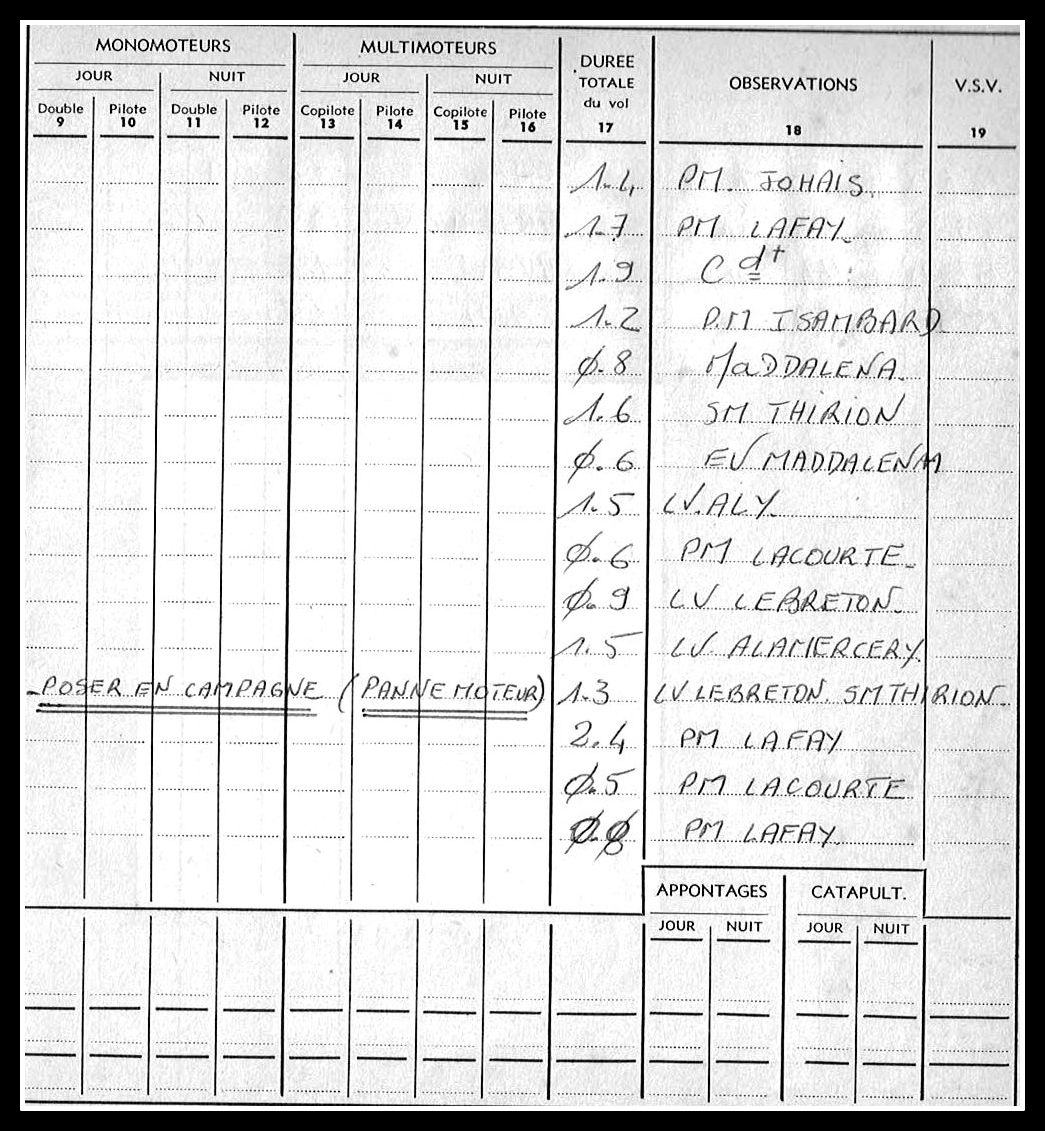 MONOMOTEURS MULTIMOTEURS DUREE TOTALE du vol OBSERVATIONS V.S.V.
JOUR NUIT JOUR NUIT
Double Pilote Double Pilote Copilote Pilote Copilote Pilote
9 10 11 12 13 14 15 16 17 18 19
1.4 PM. JOHAIS.
1.7 PM LAFAY.
1.9 C dt
1.2 P.M ISAMBARD
Ø.8 MaDDALENA.
1.6 SM THIRION
Ø.6 EV MADDALENA
1.5 LV.ALY.
Ø.6 PM LACOURTE.
Ø.9 LV LEBRETON.
1.5 LV ALAMERCERY.
-POSER EN CAMPAGNE (PANNE MOTEUR) 1.3 LV.LEBRETON. SM THIRION.
2.4 PM LAFAY
Ø.5 PM LACOURTE
PM LAFAY.
APPONTAGES CATAPULT.
JOUR NUIT JOUR NUIT